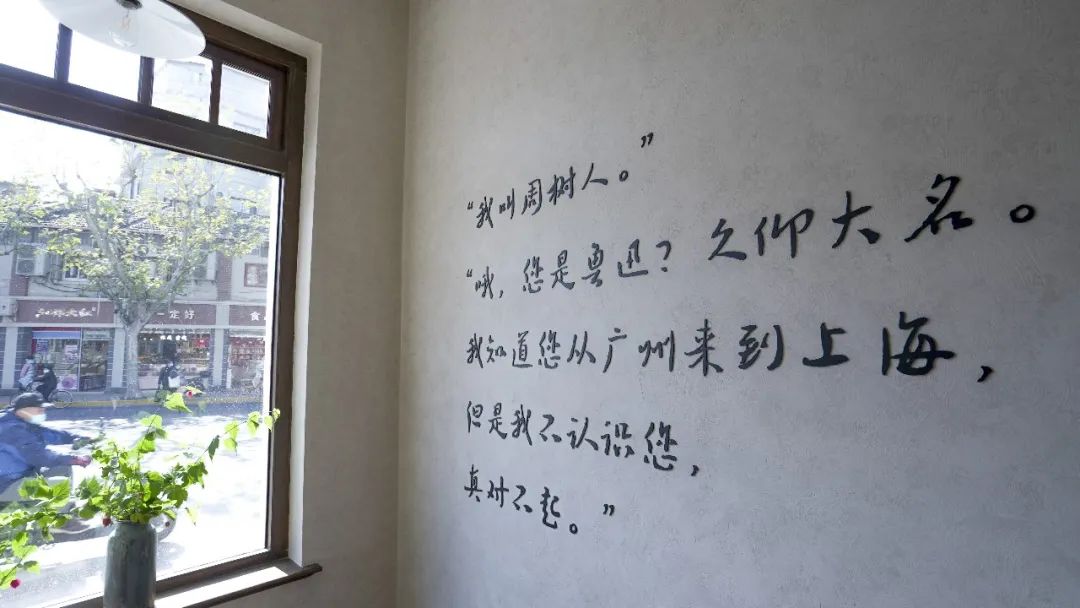 “我叫周树人。”
“哦，您是鲁迅？久仰大名。
我知道您从广州来到上海，
但是我不认识您，
真对不起。”
一定好
食